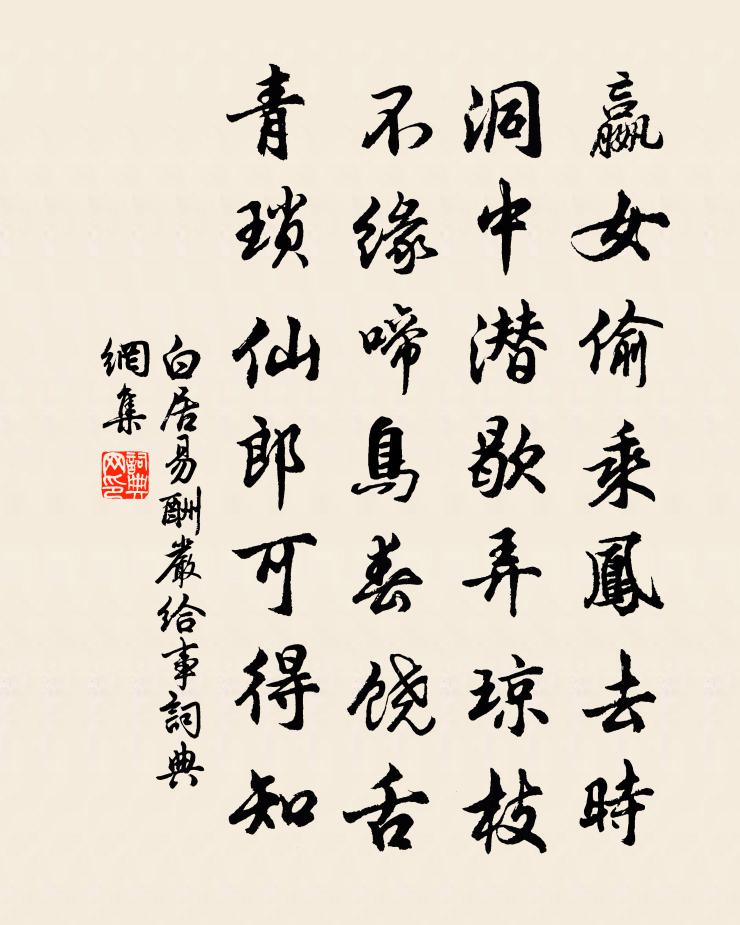 嬴女偷乘鳳去時
洞中潜歇弄琼枝
不緣啼鳥春饒舌
青瑣仙郎可得知
白居易酬嚴給事詞典
網集
詞典
网印